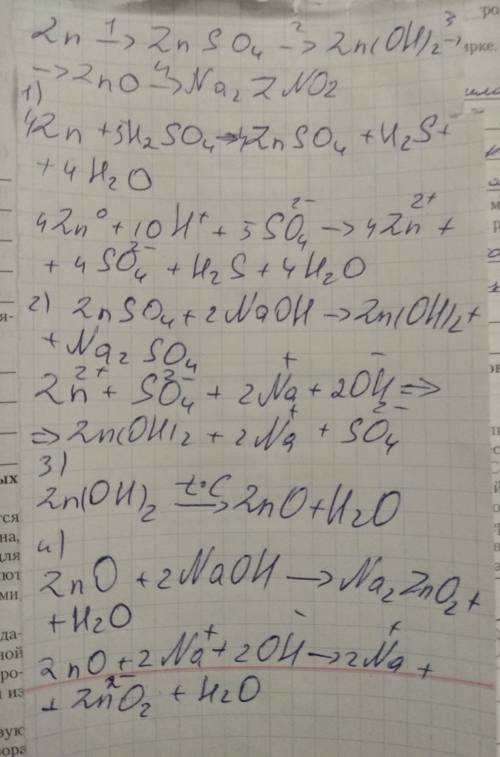 Zn 1→ ZnSO4 2→ Zn(OH)2 3→
→ ZnO 4→ Na2ZNO2
1)
4Zn + 5H2SO4 → 4ZnSO4 + H2S +
+ 4H2O
4Zn⁰ + 10H⁺ + 5SO4²⁻ → 4Zn²⁺ +
+ 4SO4²⁻ + H2S + 4H2O
2) ZnSO4 + 2NaOH → Zn(OH)2 +
+ Na2SO4
Zn²⁺ + SO4²⁻ + 2Na⁺ + 2OH⁻ ⇒
⇒ Zn(OH)2 + 2Na⁺ + SO4²⁻
3)
Zn(OH)2 t°C→ ZnO + H2O
4)
ZnO + 2NaOH → Na2ZnO2 +
+ H2O
ZnO + 2Na⁺ + 2OH⁻ → 2Na⁺ +
+ ZnO2²⁻ + H2O